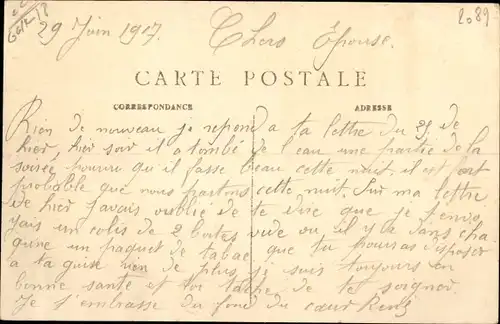 2089
29 Juin 1917. Chers Épouse.
CARTE POSTALE
CORRESPONDANCE ADRESSE
Rien de nouveau je repond a ta lettre du 25. de
hier, hier soir il a tombé de l'eau une partie de la
soirée, pourvu qu'il fasse beau cette nuit. il est fort
probable que nous partons cette nuit. Sur ma lettre
de hier j'avais oublié de te dire que je t'envo
yais un colis de 2 boites vide ou il y a dans cha
qune un paquet de tabac que tu pouras disposer
a ta guise rien de plus, je suis toujours en
bonne santé et toi tache de te soigner.
Je t'embrasse du fond du cœur René